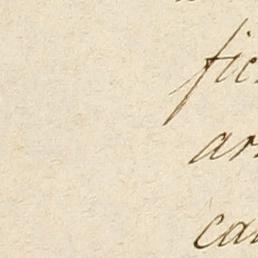 fic
ar
ca